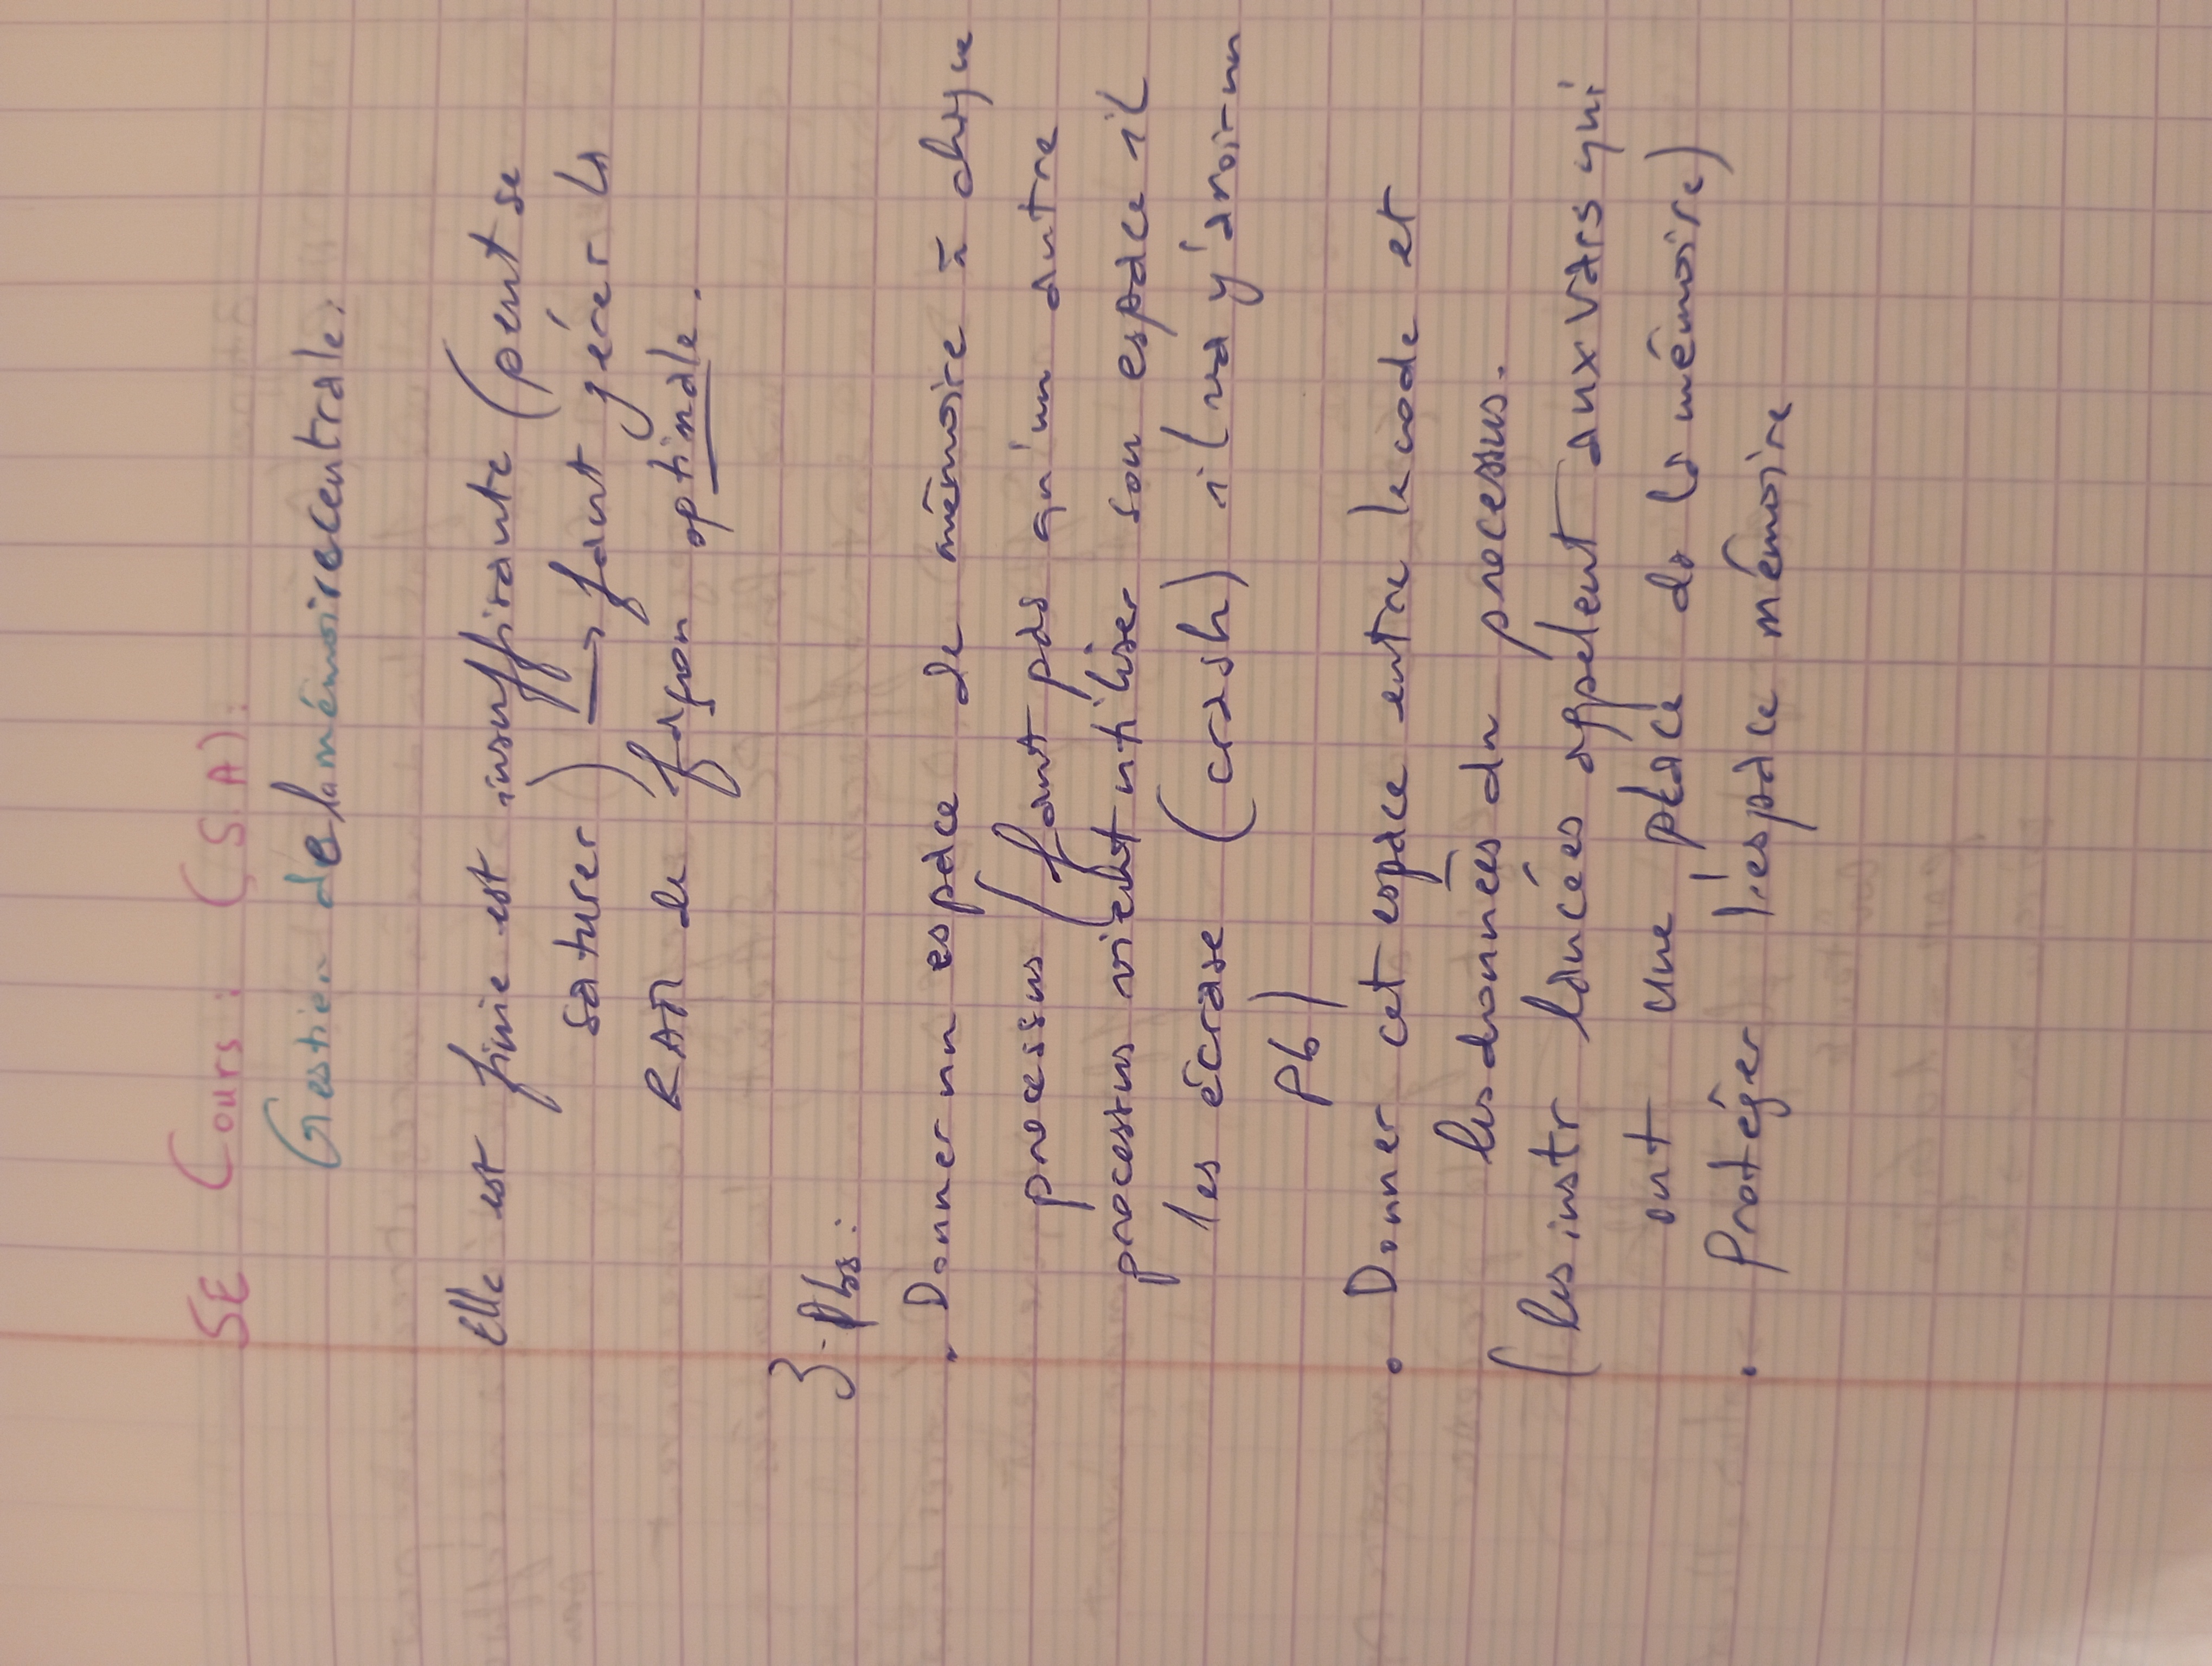 SE Cours : (S.A):
Gestion de la mémoire centrale:
Elle est finie est insuffisante (peut se
saturer) → faut gérer la
RAM de façon optimale.
3-Pbs:
. Donner un espace de mémoire à chaque
processus (faut pas qu'un autre
processus vient utiliser son espace il
les écrase (crash) il va y'avoir un
Pb)
. Donner cet espace entre le code et
les données du processus.
(les instr lancées appelent aux vars qui
ont une place de la mémoire)
. Protéger l'espace mémoire